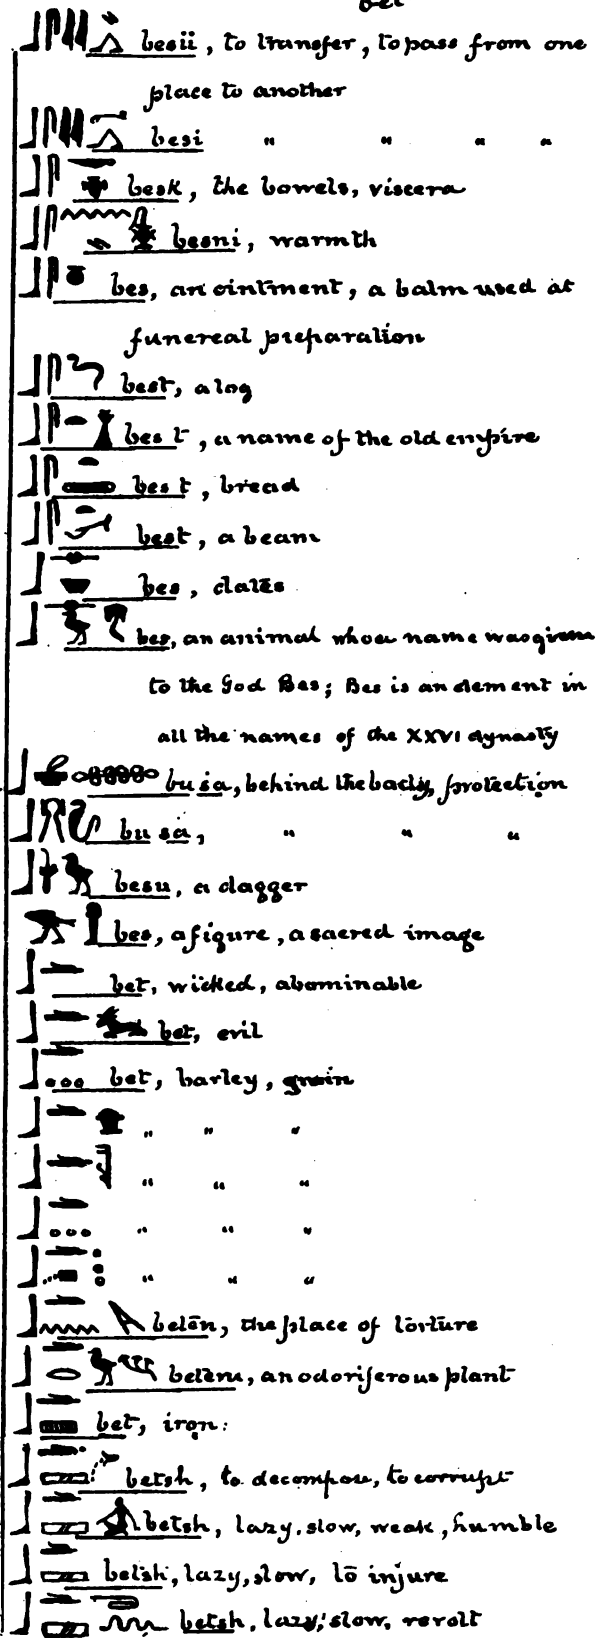 bet
besii, to transfer, to pass from one
place to another
besi " " " "
besk, the bowels, viscera
besni, warmth
bes, an ointment, a balm used at
funereal preparation
best, a log
bes t, a name of the old empire
bes t, bread
best, a beam
bes, dates
bes, an animal whose name was given
to the God Bes; Bes is an element in
all the names of the XXVI dynasty
bu sa, behind the back, protection
bu sa, " " "
besu, a dagger
bes, a figure, a sacred image
bet, wicked, abominable
bet, evil
bet, barley, grain
" " "
" " "
" " "
" " "
beten, the place of torture
betem, an odoriferous plant
bet, iron
betsh, to decompose, to corrupt
betsh, lazy, slow, weak, humble
betsh, lazy, slow, to injure
betsh, lazy, slow, revolt